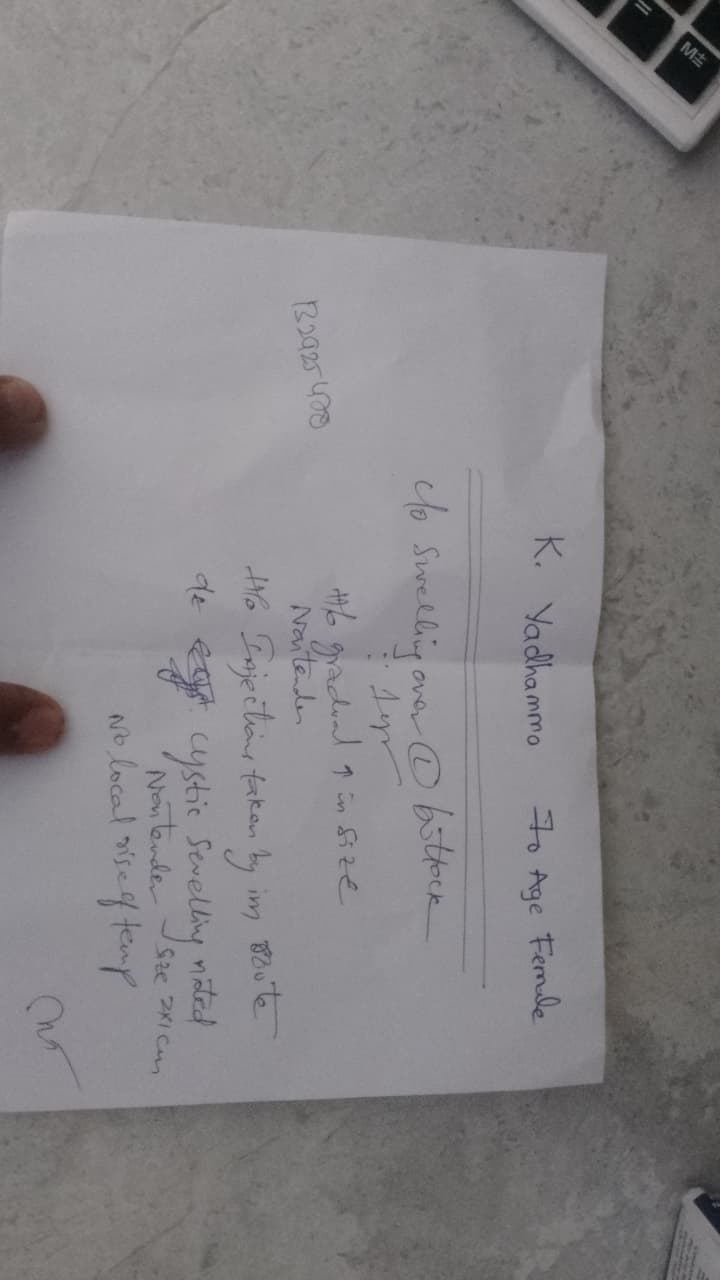 K. Yadhamma 70 Age Female
c/o Swelling over (L) buttock
: 1yr
H/o gradual ↑ in size
Nontender
H/o Injections taken by im route
o/e cystic swelling noted
Nontender, size 2x1cm
No local rise of temp
=
M±